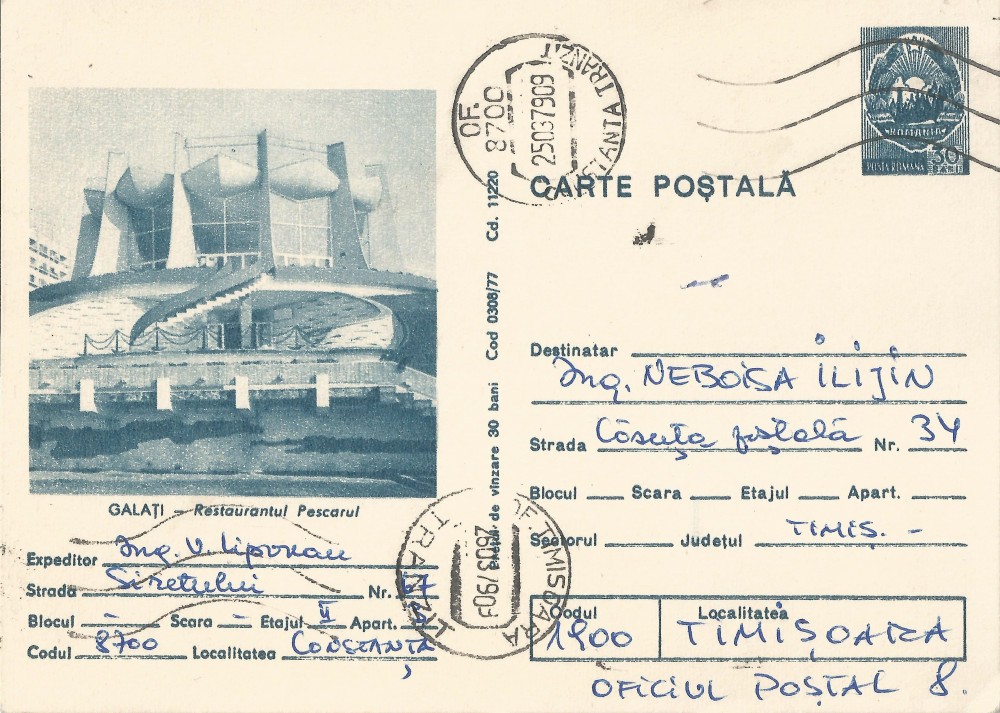 OF. 8700
CONSTANTA TRANZIT
25037909
ROMANIA
POSTA ROMANA
30 BANI
CARTE POȘTALĂ
Cd. 11220
Cod 0308/77
Prețul de vînzare 30 bani
GALAȚI – Restaurantul Pescarul
Expeditor Ing. V. Lipovan
Strada Siretului Nr. 67
Blocul – Scara – Etajul II Apart. 5
Codul 8700 Localitatea CONSTANȚA
Destinatar
Ing. NEBOISA ILIJIN
Strada Căsuța poștală Nr. 34
Blocul Scara Etajul Apart.
Sectorul Județul TIMIȘ. –
Codul Localitatea
1900 TIMIȘOARA
OFICIUL POȘTAL 8.
OF TIMISOARA
TRANZIT